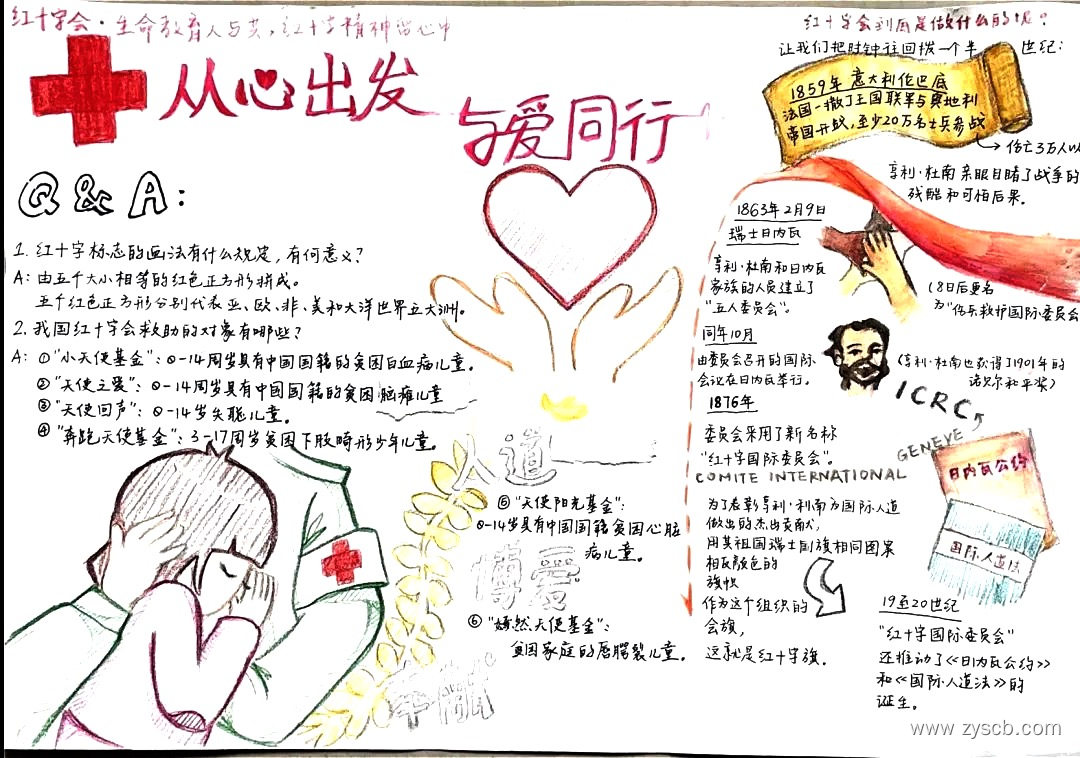 红十字会·生命教育人与共,红十字精神留心中
从心出发
与爱同行
Q & A:
1. 红十字标志的画法有什么规定,有何意义?
A: 由五个大小相等的红色正方形拼成。
五个红色正方形分别代表亚、欧、非、美和大洋世界五大洲。
2. 我国红十字会救助的对象有哪些?
A: ①"小天使基金": 0-14周岁具有中国国籍的贫困白血病儿童。
②"天使之爱": 0-14周岁具有中国国籍的贫困脑瘫儿童
③"天使回声": 0-14岁失聪儿童。
④"奔跑天使基金": 3-17周岁贫困下肢畸形少年儿童。
人道
⑤"天使阳光基金":
0-14岁具有中国国籍贫困心脏
病儿童。
博爱
⑥"嫣然天使基金":
贫困家庭的唇腭裂儿童。
奉献
红十字会到底是做什么的呢?
让我们把时钟往回拨一个半 世纪:
1859年 意大利 巴底
法国-撒丁王国联军与奥地利
帝国开战,至少20万名士兵参战
伤亡3万人以
亨利·杜南亲眼目睹了战争的
残酷和可怕后果。
1863年2月9日
瑞士日内瓦
亨利·杜南和日内瓦
家族的人员建立了
"五人委员会"。
(8日后更名
为"伤兵救护国际委员会
同年10月
由委员会召开的国际
会议在日内瓦举行。
(亨利·杜南也获得了1901年的
诺贝尔和平奖)
1876年
委员会采用了新名称
"红十字国际委员会"。
ICRC
COMITE INTERNATIONAL
GENEVE
日内瓦公约
国际人道法
为了表彰亨利·利南为国际人道
做出的杰出贡献,
用其祖国瑞士国旗相同图案
相反颜色的
旗帜
作为这个组织的
会旗,
这就是红十字旗.
19至20世纪
"红十字国际委员会"
还推动了《日内瓦公约》
和《国际人道法》的
诞生。
www.zyscb.com